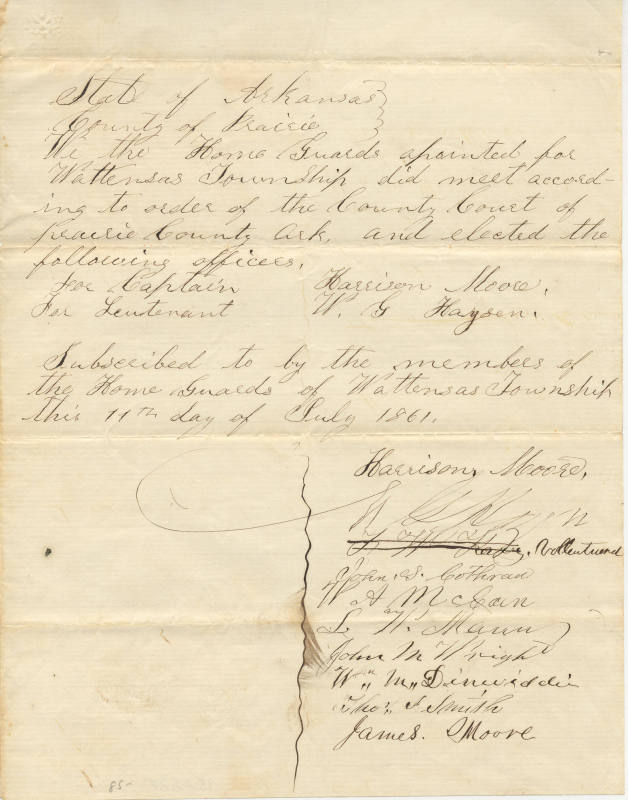 State of Arkansas
County of Prairie
We the Home Guards apointed for
Wattensas Township did meet accord-
ing to order of the County Court of
prairie County Ark, and elected the
following officers,
For Captain Harrison Moore,
For Leutenant W. G Haysen.
Subscribed to by the members of
the Home Guards of Wattensas Township
this 11th day of July 1861.
Harrison, Moore,
W G
W
John, S. Cothran
W A McCain
L. W. Mann
John M Wright
W,, M,, Dinwiddie
Thos, J Smith
James. Moore
85-